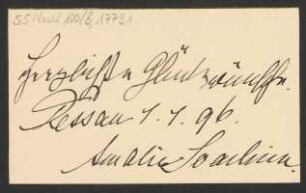 55 Nachl 100/B, 17731
Herzlichste Glückwünsche.
Dessau 1.1.96.
Amalie Joachim.